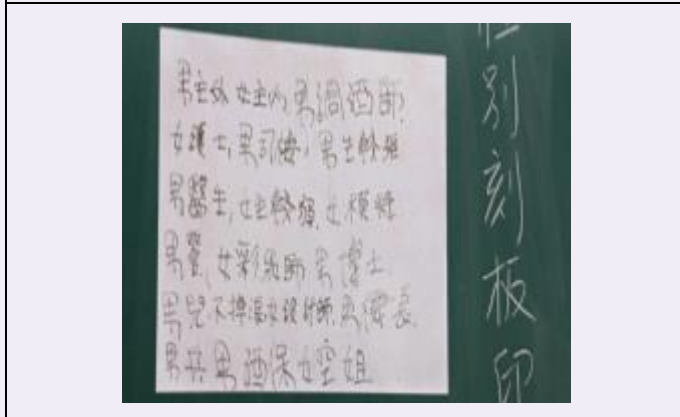 男主外,女主內,男調酒師,
女護士,男司機,男生幹
男醫生,女主,女模特
男警,女彩妝師,男博士
男兒不掉淚,女設計師,男
男兵,男酒保,女空姐
性別刻板印